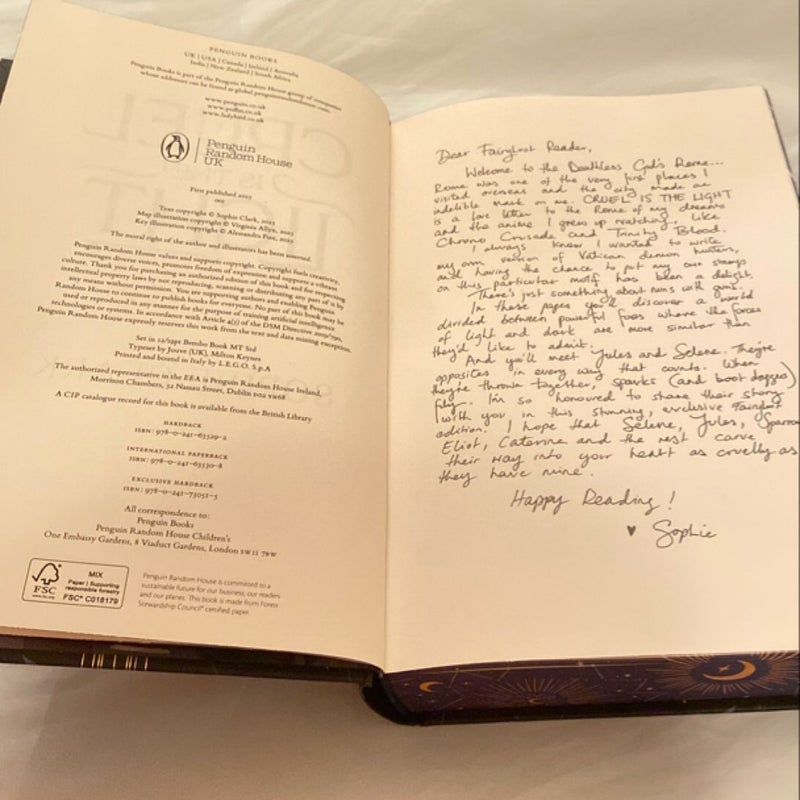 PENGUIN BOOKS
UK | USA | Canada | Ireland | Australia
India | New Zealand | South Africa
Penguin Books is part of the Penguin Random House group of companies
whose addresses can be found at global.penguinrandomhouse.com.
www.penguin.co.uk
www.puffin.co.uk
www.ladybird.co.uk
Penguin
Random House
UK
First published 2025
001
Text copyright © Sophie Clark, 2025
Map illustration copyright © Virginia Allyn, 2025
Key illustration copyright © Alexandra Fust, 2025
The moral right of the author and illustrators has been asserted
Penguin Random House values and supports copyright. Copyright fuels creativity,
encourages diverse voices, promotes freedom of expression and supports a vibrant
culture. Thank you for purchasing an authorized edition of this book and for respecting
intellectual property laws by not reproducing, scanning or distributing any part of it by
any means without permission. You are supporting authors and enabling Penguin
Random House to continue to publish books for everyone. No part of this book may be
used or reproduced in any manner for the purpose of training artificial intelligence
technologies or systems. In accordance with Article 4(3) of the DSM Directive 2019/790,
Penguin Random House expressly reserves this work from the text and data mining exception.
Set in 12/15pt Bembo Book MT Std
Typeset by Jouve (UK), Milton Keynes
Printed and bound in Italy by L.E.G.O. S.p.A
The authorized representative in the EEA is Penguin Random House Ireland,
Morrison Chambers, 32 Nassau Street, Dublin D02 YH68
A CIP catalogue record for this book is available from the British Library
HARDBACK
ISBN: 978-0-241-63529-2
INTERNATIONAL PAPERBACK
ISBN: 978-0-241-63530-8
EXCLUSIVE HARDBACK
ISBN: 978-0-241-73051-5
All correspondence to:
Penguin Books
Penguin Random House Children's
One Embassy Gardens, 8 Viaduct Gardens, London SW11 7BW
FSC
www.fsc.org
MIX
Paper | Supporting
responsible forestry
FSC® C018179
Penguin Random House is committed to a
sustainable future for our business, our readers
and our planet. This book is made from Forest
Stewardship Council® certified paper.
Dear Fairyloot Reader,
Welcome to the Deathless God's Rome...
Rome was one of the very first places I
visited overseas and the city made an
indelible mark on me. CRUEL IS THE LIGHT
is a love letter to the Rome of my dreams
and the anime I grew up watching, like
Chrono Crusade and Trinity Blood.
I always knew I wanted to write
my own version of Vatican demon hunters,
and having the chance to put my own stamp
on this particular motif has been a delight.
There's just something about nuns with guns.
In these pages you'll discover a world
divided between powerful foes where the forces
of light and dark are more similar than
they'd like to admit.
And you'll meet Jules and Selene. They're
opposites in every way that counts. When
they're thrown together, sparks (and boot daggers)
fly. I'm so honoured to share their story
with you in this stunning, exclusive Fairyloot
edition. I hope that Selene, Jules, Sparrow
Eliot, Caterina and the rest carve
their way into your heart as cruelly as
they have mine.
Happy Reading!
♥ Sophie